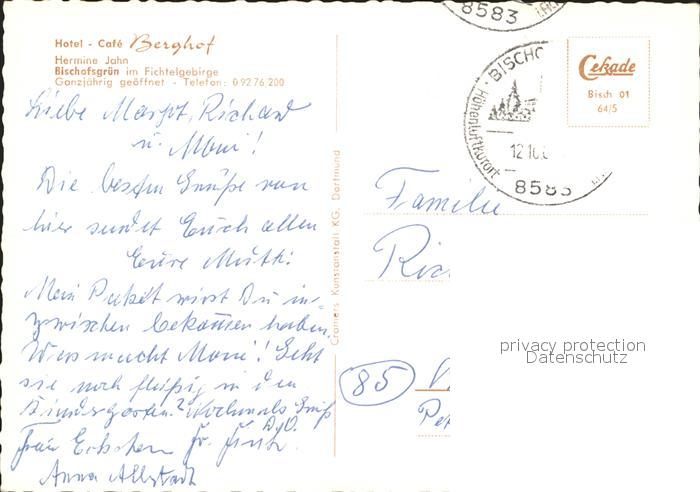 Hotel - Café Berghof
Hermine Jahn
Bischofsgrün im Fichtelgebirge
Ganzjährig geöffnet - Telefon: 0 92 76, 200
Liebe Margot, Richard
u. Moni!
Die besten Grüße von
hier sendet Euch allen
Eure Mutti.
Mein Paket wirst Du in-
zwischen bekommen haben.
Was macht Moni! Geht
sie noch fleißig in den
Kindergarten? Nochmals Gruß
D.O.
Frau
Anna Allstadt
Cramers Kunstanstalt KG, Dortmund
8583
BISCHO
Höhenluftkurort
12.10.
8583
Cekade
Bisch 01
64/5
Familie
Ric
85
privacy protection
Datenschutz